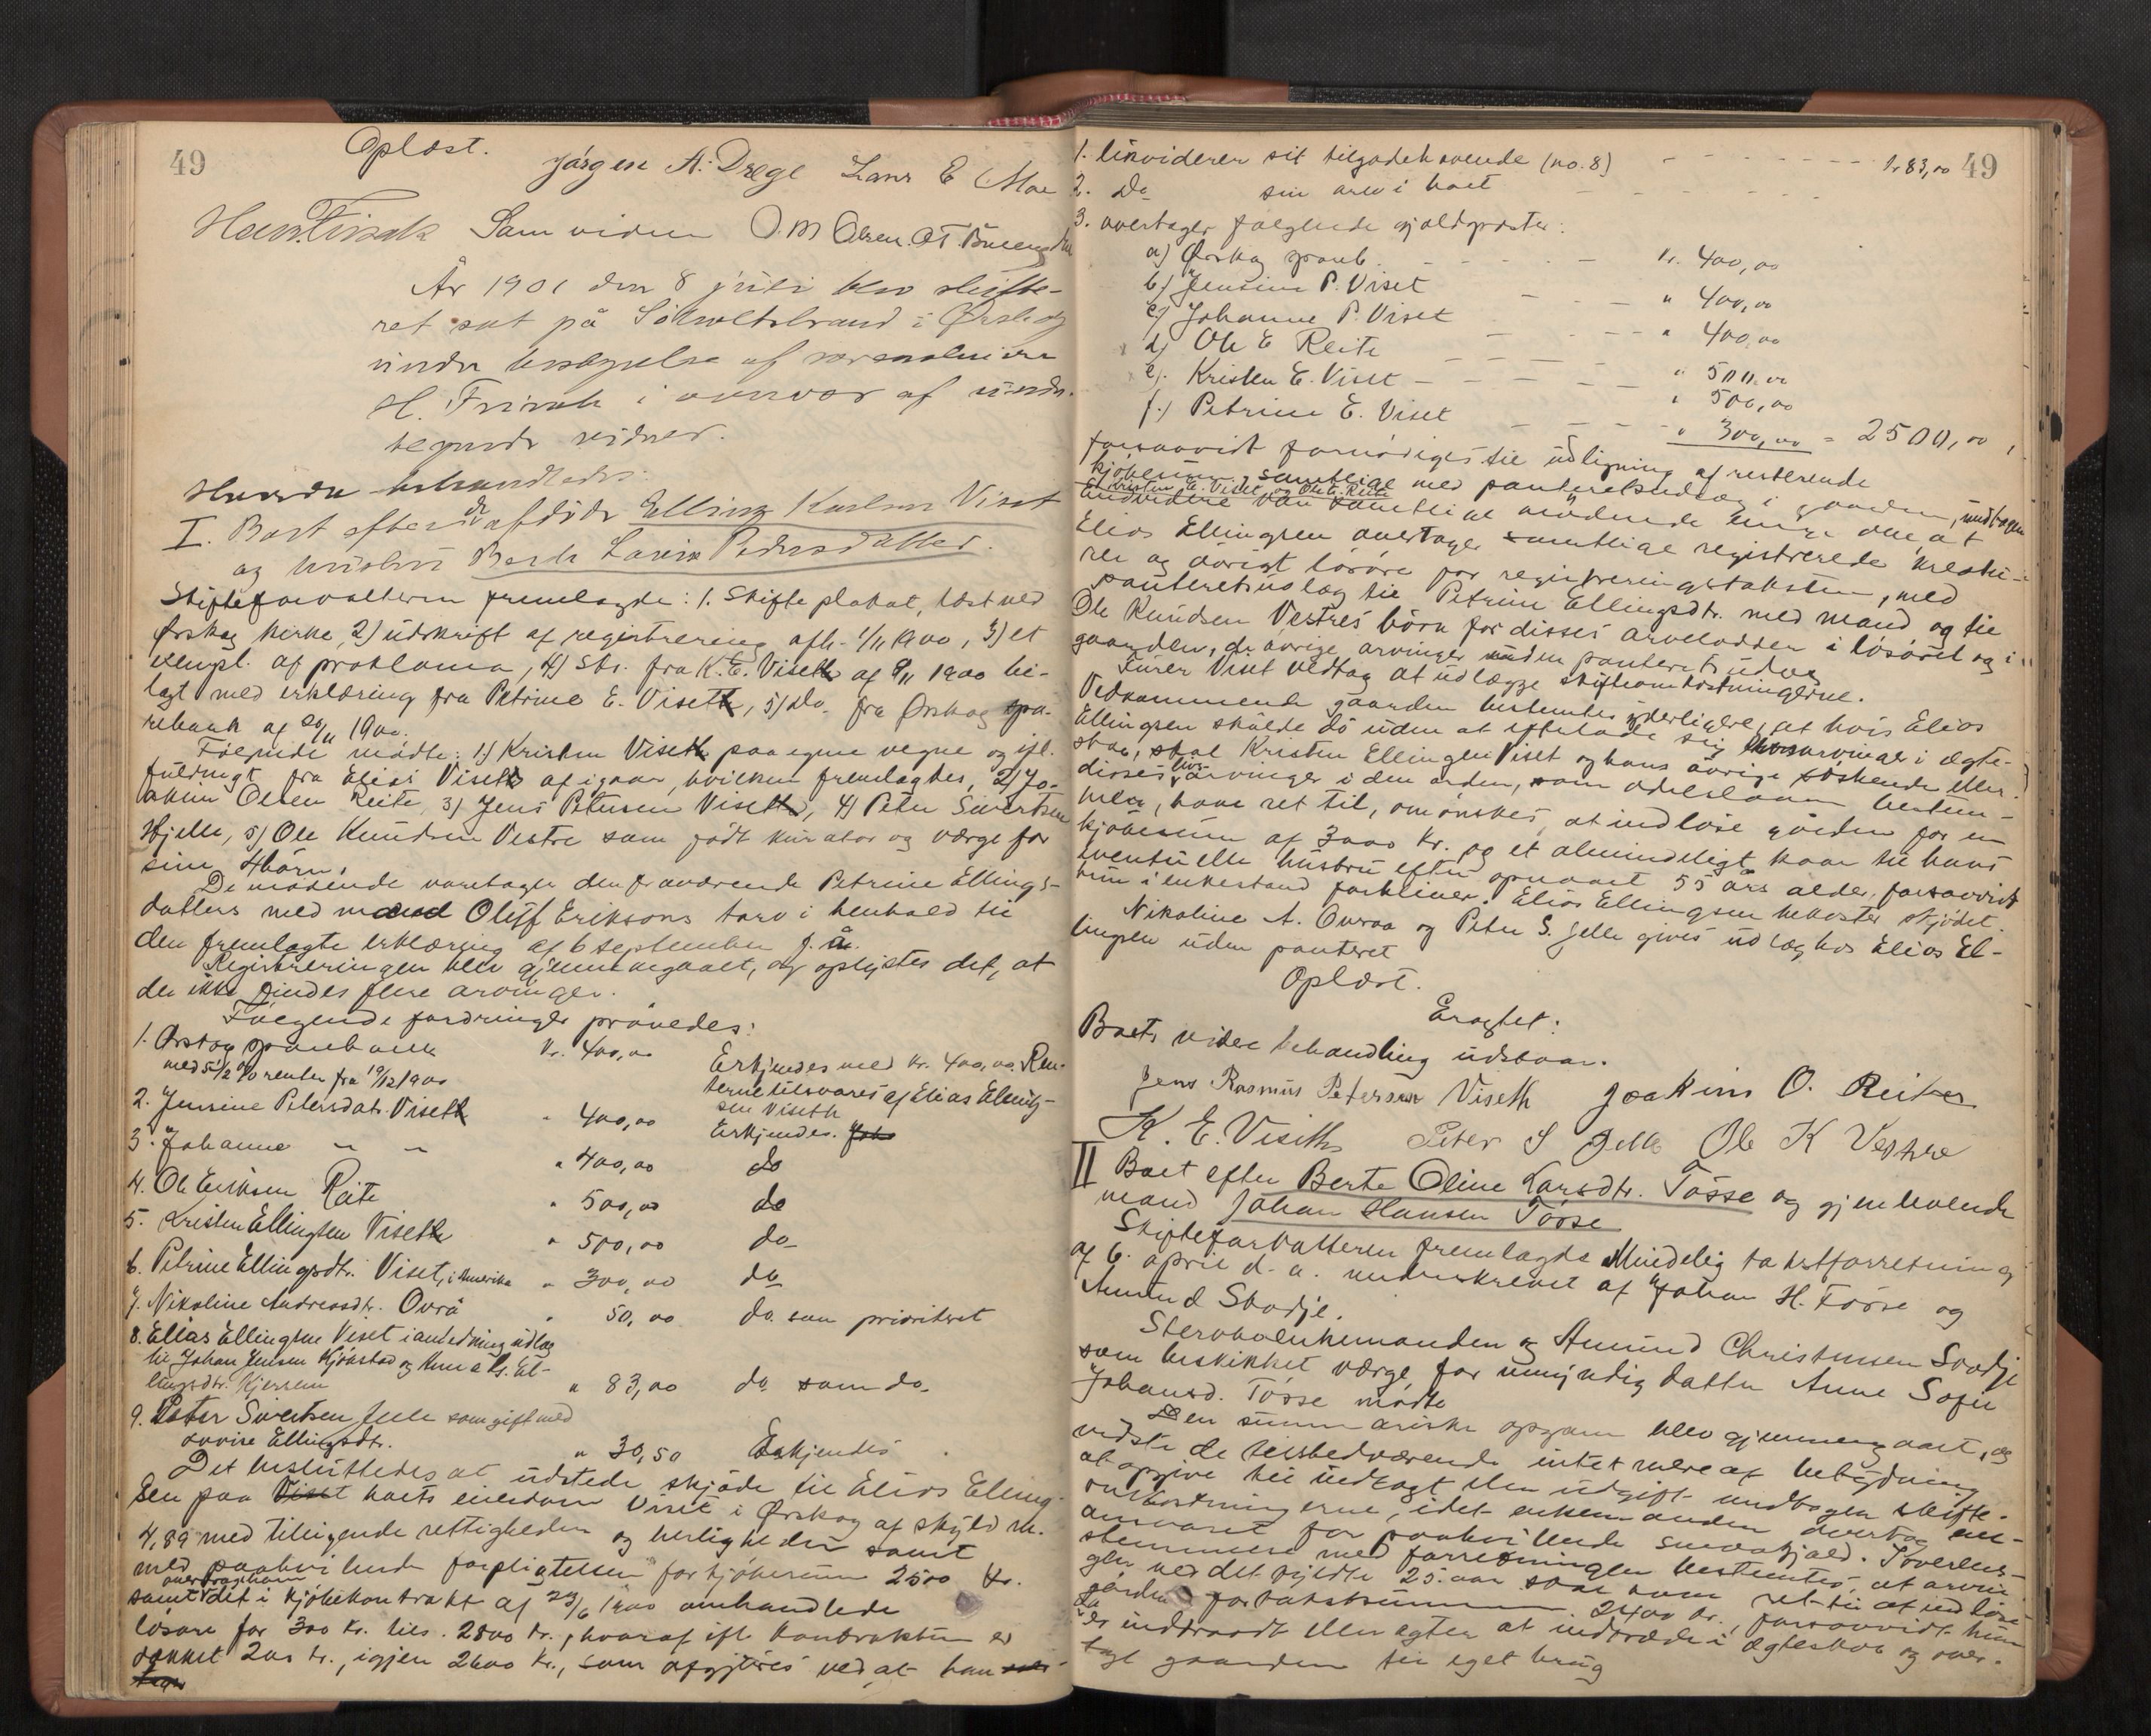 49
Oplæst.
Jörgen A. Drege Lars E Moe
Som vidner O. M Olsen.
År 1901 den 8 juli blev skifte-
ret sat på Söholtstrand i Ørskog
under bestyrelse af sorenskriver
H. Frisak i overvær af under-
tegnede vidner.
Hvorda behandledes:
I. Boet efter de afdöde Elling Karlsen Viset
og hustru Berte Lovise Pedersdatter.
Skifteforvalteren fremlagde: 1. Skifteplakat, læst ved
Ørskog kirke, 2) udskrift af registrering afh. 1/11 1900, 3) et
exempl. af proklama, 4) Skr. fra K. E. Viseth af 9/11 1900 bi-
lagt med erklæring fra Petrine E. Viseth, 5) Do. fra Ørskog spa-
rebank af 20/11 1900.
Fölgende mödte: 1) Kristen Viseth paa egne vegne og ifl.
fuldmagt fra Elias Viseth af igaar, hvilken fremlagdes, 2) Jo-
akim Olsen Reite, 3) Jens Petersen Viseth, 4) Peter Sivertsen
Hjelle, 5) Ole Knudsen Vestre som födt kurator og værge for
sine 4 börn.
De mödende varetager den fraværende Petrine Ellings-
datters med mand Oluf Eriksons tarv i henhold til
den fremlagte erklæring af 6 september f. å.
Registreringen blev gjennemgaaet, og oplystes det, at
der ikke findes flere arvinger.
Fölgende fordringer prövedes:
1. Ørskog sparebank Kr. 400,00 Erkjendes med kr. 400,00. Ren-
med 5 1/2 % renter fra 19/12 1900 terne tilsvares af Elias Elling-
sen Viseth
2. Jensine Petersdatr. Viseth " 400,00 Erkjendes.
3. Johanne " " " 400,00 do
4. Ole Eriksen Reite " 500,00 do
5. Kristen Ellingsen Viseth " 500,00 do
6. Petrine Ellingsdtr. Viset, i Amerika " 300,00 do
7. Nikoline Andreasdtr. Ovrå " 50,00 do. som prioriteret
8. Elias Ellingsen Viset i anledning udlæg
til Johan Jensen Kjökstad og Ellingsdtr. Hjerrem " 83,00 do. som do.
9. Peter Sivertsen Jelle som gift med
Lovise Ellingsdtr. " 30,50 Erkjendes
Det besluttedes at udstede skjöde til Elias Elling-
sen paa boets eiendom Viset i Ørskog af skyld m.
4,89 med tilligende rettigheder og herligheder samt
med paahvilende forpligtelser for kjöbesum 2500 kr.
samt overdrage ham det i kjöbekontrakt af 23/6 1900 omhandlede
lösöre for 300 kr. tils. 2800 kr., hvoraf ifl. kontrakten er
dækket 200 kr., igjen 2600 kr., som afgjöres ved at han
49
1. likviderer sit tilgodehavende (no. 8) kr 83,00
2. Do sin arv i boet
3. overtager følgende gjældsposter:
a) Ørskog spareb. kr. 400,00
b) Jensine P. Viset " 400,00
c) Johanne P. Viset " 400,00
d) Ole E Reite " 500,00
e) Kristen E. Viset " 500,00
f.) Petrine E. Viset " 300,00 = 2500,00,
forsaavidt fornödiges til udligning af resterende
kjöbesum, samtlige med panteretsudlæg i gaarden, undtagen
Kristen E. Viset og Ole E. Reite
Endvidere var samtlige mödende enige om, at
Elias Ellingsen overtager samtlige registrerede kreatu-
rer og övrigt lösöre for registreringstaksten, med
panteretsudlæg til Petrine Ellingsdtr. med mand og til
Ole Knudsen Vestres börn for disses arvelodder i lösöret og i
gaarden, de övrige arvinger uden panteretsudlæg
Viset vedtog at udlægge skifteomkostningerne.
Vedkommende gaarden bestemtes yderligere, at hvis Elias
Ellingsen skulde dö uden at efterlade sig livsarvinger i ægte-
skab, skal Kristen Ellingsen Viset og hans övrige söskende eller
disses livsarvinger i den orden, som odelsloven bestem-
mer, have ret til, om önskes, at indlöse gården for en
kjöbesum af 3000 kr. og et almindeligt kaar til hans
eventuelle hustru efter opnaaet 55 års alder, forsaavidt
hun i enkestand forbliver. Elias Ellingsen bekoster skjödet.
Nikoline A. Ovraa og Peter S. Jelle gives udlæg hos Elias El-
lingsen uden panteret
Oplæst.
Eragtet:
Boets videre behandling udstaar.
Jens Rasmus Petersen Viseth Joakim O. Reite
K. E. Viseth Peter S Jelle Ole K Vestre
II Boet efter Berte Oline Larsdtr. Tösse og gjenlevende
mand Johan Hansen Tösse
Skifteforvalteren fremlagde Mindelig takstforretning
af 6. april d. a. underskrevet af Johan H. Tösse og
Amund Skodje.
Stervboenkemanden og Amund Christensen Skodje
som beskikket værge for umyndig datter Anne Sofie
Johansd. Tösse mödte
Den summariske opgave blev gjennemgaaet, og
vidste de tilstedeværende intet mere af betydning
at opgive til indtægt eller udgift undtagen skifte-
omkostningerne, idet enkemanden overtog an-
svaret for paahvilende smaagjæld. I overens-
stemmelse med forretningen bestemtes, at arvin-
gen ved det fyldte 25. aar skal have ret til at indlöse
gården for takstsummen 2400 kr., forsaavidt hun
da er indtraadt eller agter at indtræde i ægteskab og over-
tage gaarden til eget brug